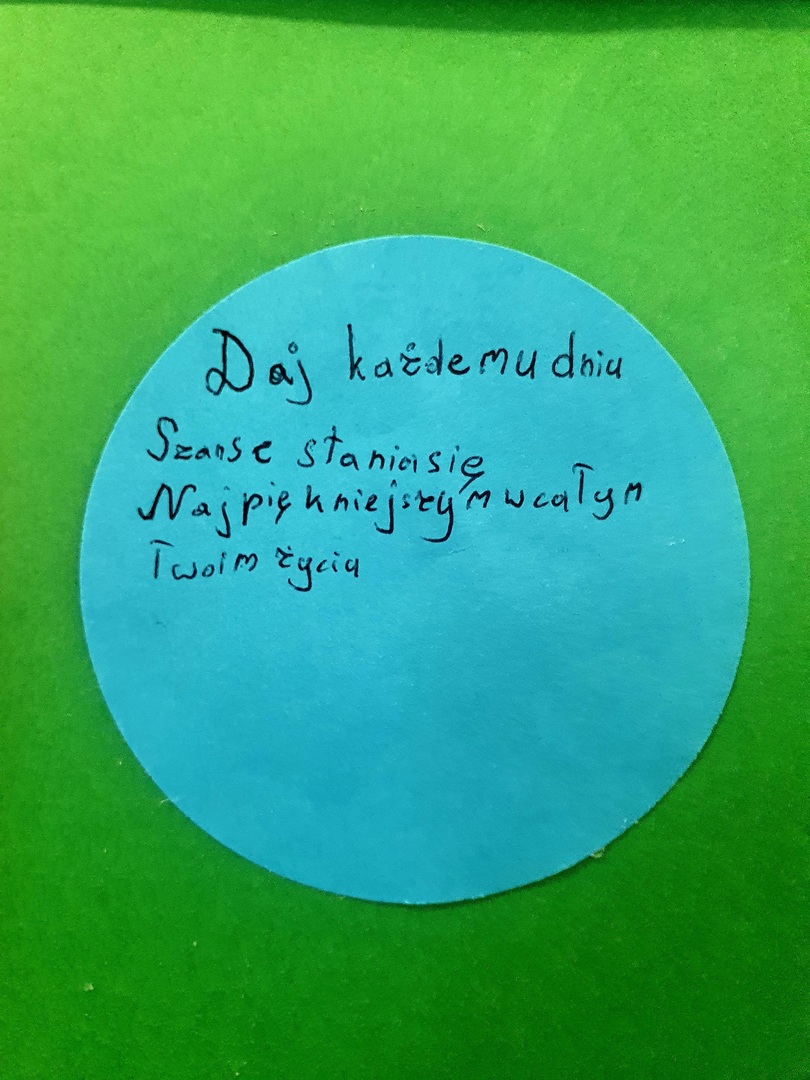 Daj każdemu dniu
Szanse stania się
Najpiękniejszym w całym
Twoim życiu